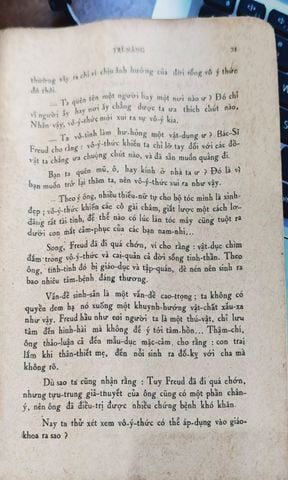 TRÍ-NĂNG 31
thường xảy ra chỉ vì chịu ảnh hưởng của đời sống vô ý thức
đó thôi.
— Ta quên tên một người hay một nơi nào ư ? Đó chỉ
vì người ấy hay nơi ấy chẳng được ta ưa thích chút nào,
Nhân vậy, vô-ý-thức mới xui ra sự vô-ý kia.
— Ta vô-tình làm hư-hỏng một vật-dụng ư ? Bác-Sĩ
Freud cho rằng : vô-ý-thức khiến ta chỉ lỡ tay đối với các đồ-
vật ta chẳng ưa chuộng chút nào, và đã sẵn muốn quăng đi.
Bạn quên mũ, ô, hay kính ở nhà ta ư ? Đó là vì
bạn muốn trở lại thăm ta, nên vô-ý-thức xui ra như vậy.
— Theo ý ông, nhiều thiếu-nữ tự cho bộ tóc mình là xinh-
đẹp ; vô-ý-thức khiến các cô gài châm, giắt lược một cách lơ-
đãng rất tài tình, để thế nào có lúc làn tóc mây cũng tuột ra
dưới con mắt cảm-phục của các bạn nam-nhi...
Song, Freud đã đi quá chớn, vì cho rằng : vật-dục chìm
đắm trong vô-ý-thức và cai-quản cả đời sống tinh-thần. Theo
ông, tình-tính đó bị giáo-dục và tập-quán, đè nén nên sinh ra
bao nhiêu tâm-bệnh đáng thương.
Vấn-đề sinh-sản là một vấn-đề cao-trọng ; ta không có
quyền đem hạ nó xuống một khuynh-hướng vật-chất xấu-xa
như vậy. Freud hầu như coi người ta là một thú-vật, chỉ lưu
tâm đến hình-hài mà không để ý tới tâm-hồn... Thậm-chí,
ông thảo-luận cả đến mẫu-dục mặc-cảm, cho rằng : con trai
lắm khi thân-thiết mẹ, đến nỗi sinh ra đố-kỵ với cha mà
không rõ.
Dù sao ta cũng nhận rằng : Tuy Freud đã đi quá chớn,
nhưng tựu-trung giả-thuyết của ông cũng có một phần chân-
ý, nên ông đã điều-trị được nhiều chứng bệnh khó khăn.
Nay ta thử xét xem vô-ý-thức có thể áp-dụng vào giáo-
khoa ra sao ?